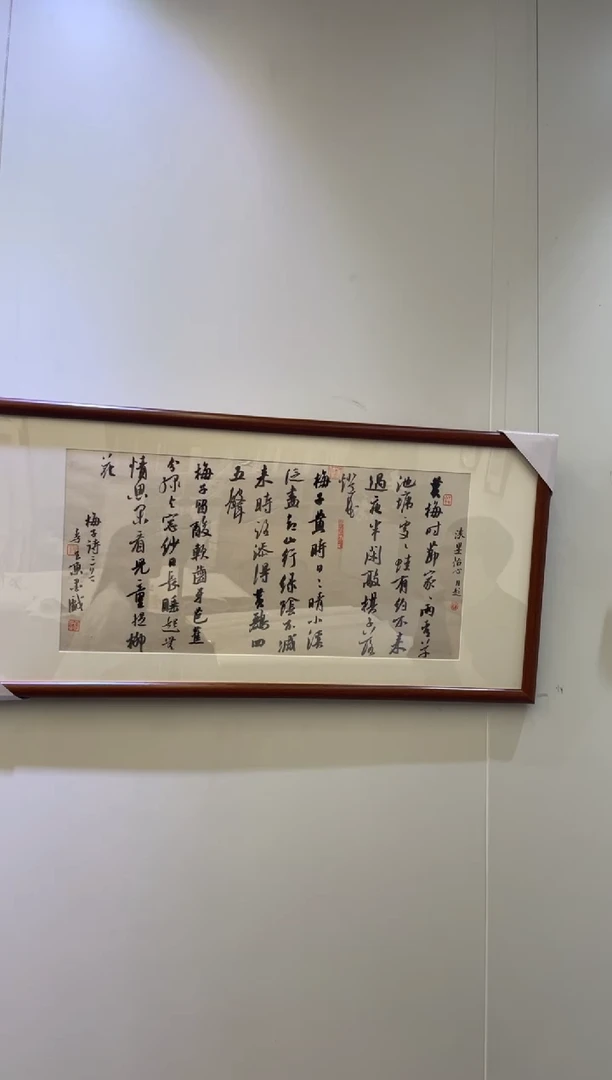 黄梅时節家〻雨青草
池塘处〻蛙有约不来
過夜半閑敲棋子落
燈花
梅子黄時日〻晴小溪
泛盡却山行绿陰不减
来時路添得黄鸝四
五聲
梅子留酸軟齒牙芭蕉
分緑與窗纱日長睡起无
情思闲看児童捉柳
花
梅子詩三首